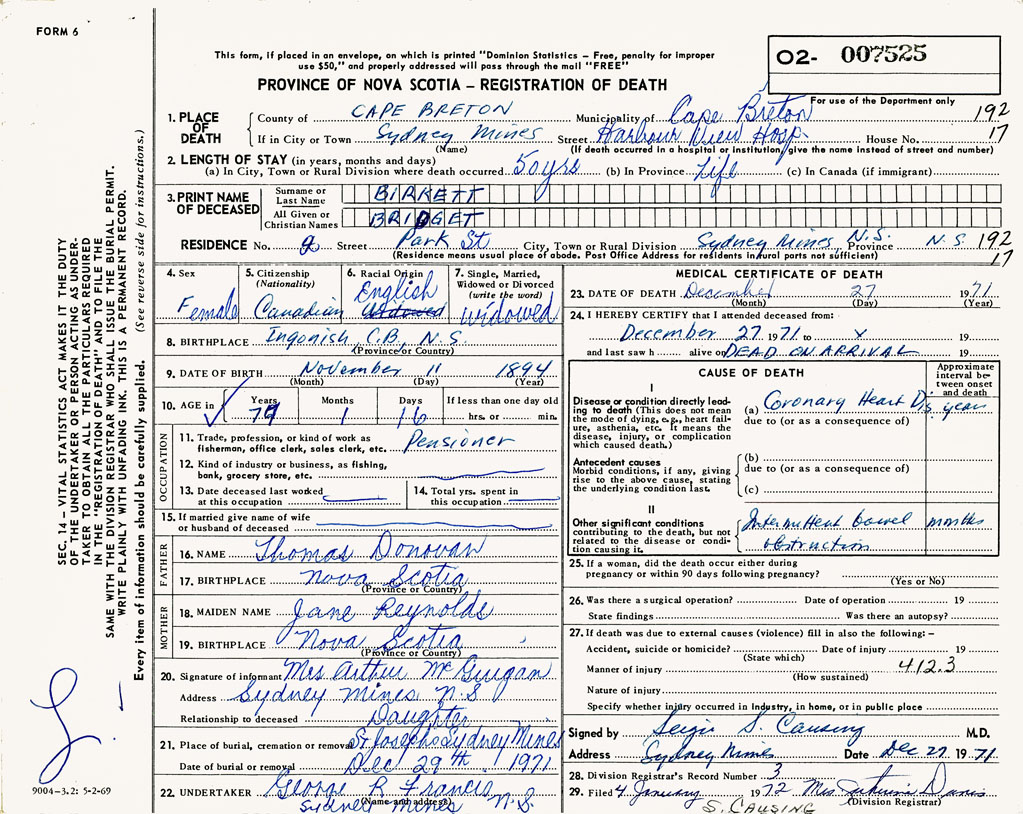 FORM 6
This form, if placed in an envelope, on which is printed "Dominion Statistics – Free, penalty for improper
use $50," and properly addressed will pass through the mail "FREE"
PROVINCE OF NOVA SCOTIA – REGISTRATION OF DEATH
O2- 007525
For use of the Department only
1. PLACE OF DEATH County of CAPE BRETON Municipality of Cape Breton 192
If in City or Town Sydney Mines Street Harbour View Hosp. House No. 17
(Name) (If death occurred in a hospital or institution, give the name instead of street and number)
2. LENGTH OF STAY (in years, months and days)
(a) In City, Town or Rural Division where death occurred 50 yrs (b) In Province Life (c) In Canada (if immigrant)
3. PRINT NAME OF DECEASED Surname or Last Name BIRKETT
All Given or Christian Names BRIDGET
RESIDENCE No. 9 Street Park St City, Town or Rural Division Sydney Mines, N.S. Province N.S. 192
(Residence means usual place of abode. Post Office Address for residents in rural parts not sufficient) 17
4. Sex Female
5. Citizenship (Nationality) Canadian
6. Racial Origin English Widowed
7. Single, Married, Widowed or Divorced (write the word) Widowed
8. BIRTHPLACE Ingonish, C.B., N.S.
(Province or Country)
9. DATE OF BIRTH November 11 1894
(Month) (Day) (Year)
10. AGE in Years Months Days If less than one day old
1 16 hrs. or min.
OCCUPATION
11. Trade, profession, or kind of work as fisherman, office clerk, sales clerk, etc. Pensioner
12. Kind of industry or business, as fishing, bank, grocery store, etc.
13. Date deceased last worked at this occupation
14. Total yrs. spent in this occupation
15. If married give name of wife or husband of deceased
FATHER
16. NAME Thomas Donovan
17. BIRTHPLACE Nova Scotia
(Province or Country)
MOTHER
18. MAIDEN NAME Jane Reynolds
19. BIRTHPLACE Nova Scotia
(Province or Country)
20. Signature of informant Mrs Arthur McGuigan
Address Sydney Mines N.S
Relationship to deceased Daughter
21. Place of burial, cremation or removal St Josephs Sydney Mines
Date of burial or removal Dec 29th 1971
22. UNDERTAKER George R Francis
(Name and address) Sydney Mines N.S.
MEDICAL CERTIFICATE OF DEATH
23. DATE OF DEATH December 27 1971
(Month) (Day) (Year)
24. I HEREBY CERTIFY that I attended deceased from:
December 27 1971 to x 19
and last saw h alive on DEAD ON ARRIVAL 19
CAUSE OF DEATH
Approximate interval between onset and death
I
Disease or condition directly leading to death (This does not mean the mode of dying, e.g., heart failure, asthenia, etc. It means the disease, injury, or complication which caused death.)
(a) Coronary Heart Dis. years
due to (or as a consequence of)
Antecedent causes
Morbid conditions, if any, giving rise to the above cause, stating the underlying condition last.
(b)
due to (or as a consequence of)
(c)
II
Other significant conditions contributing to the death, but not related to the disease or condition causing it.
Intermittent bowel months
obstruction
25. If a woman, did the death occur either during pregnancy or within 90 days following pregnancy?
(Yes or No)
26. Was there a surgical operation? Date of operation 19
State findings Was there an autopsy?
27. If death was due to external causes (violence) fill in also the following: –
Accident, suicide or homicide? Date of injury 19
(State which)
Manner of injury 412.3
(How sustained)
Nature of injury
Specify whether injury occurred in industry, in home, or in public place
Signed by Sergio S. Causing M.D.
Address Sydney Mines Date Dec 27 1971
28. Division Registrar's Record Number 3
29. Filed 4 January 1972 Mrs Davis
(Division Registrar)
S. CAUSING
SEC. 14 – VITAL STATISTICS ACT MAKES IT THE DUTY
OF THE UNDERTAKER OR PERSON ACTING AS UNDER-
TAKER TO OBTAIN ALL THE PARTICULARS REQUIRED
IN THE "REGISTRATION OF DEATH" AND TO FILE THE
SAME WITH THE DIVISION REGISTRAR WHO SHALL ISSUE THE BURIAL PERMIT.
WRITE PLAINLY WITH UNFADING INK. THIS IS A PERMANENT RECORD.
Every item of information should be carefully supplied. (See reverse side for instructions.)
9004-3.2: 5-2-69